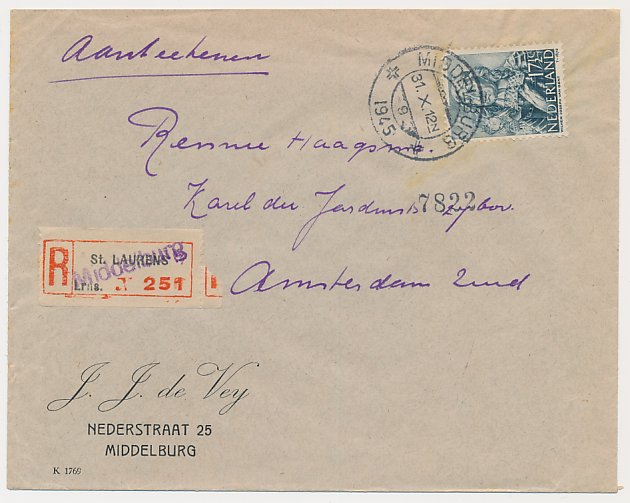 Aanteekenen
MIDDELBURG
31.X.12N
1945
17½ CT
NEDERLAND
Rennie Haagsma
Karel du Jardinstr
7822
Amsterdam Zuid
R
St. LAURENS
Middelburg
Lrns. N 251
J. J. de Vey
NEDERSTRAAT 25
MIDDELBURG
K 1769